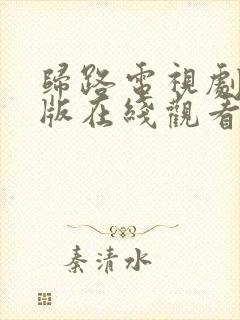 歸路電視劇
版在綫觀看
秦清水